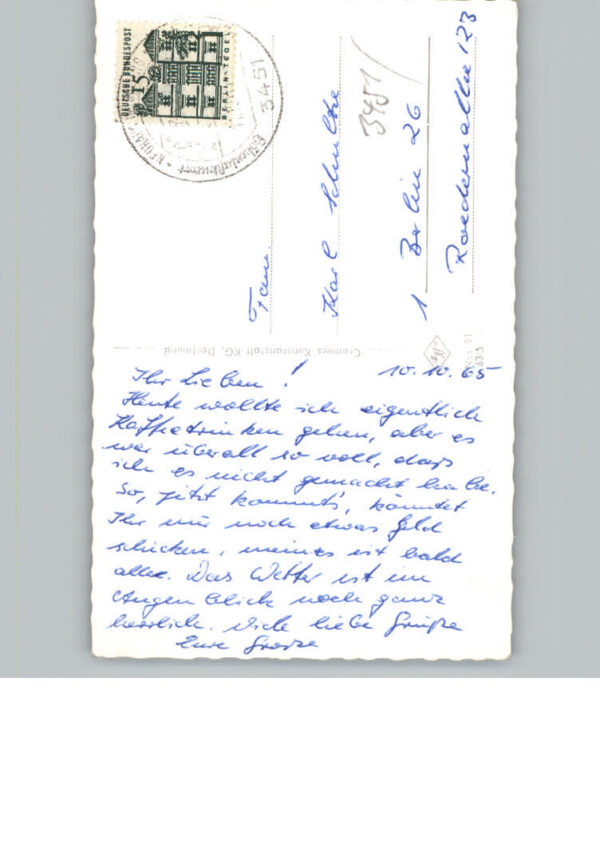 Ihr Lieben! 10.10.65
Heute wollte ich eigentlich
Kaffeetrinken gehen, aber es
war überall so voll, dass
ich es nicht gemacht habe.
So, jetzt kommt's, könntet
Ihr mir noch etwas Geld
schicken, meines ist bald
alle. Das Wetter ist im
Augenblick noch ganz
herrlich. Viele liebe Grüße
Eure
Fam.
Karl Schultze
1 Berlin 26
Roedernallee 123
3451/
Cramers Kunstanstalt KG, Dortmund
DEUTSCHE BUNDESPOST
15
BERLIN-TEGEL
3451